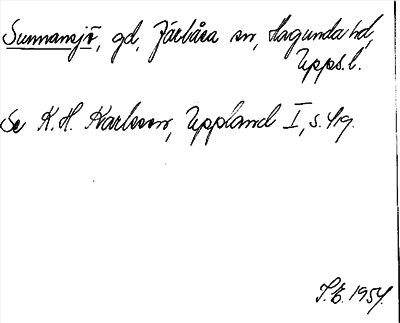 Sunnansjö, gd, Järlåsa sn, Hagunda hd,
Upps.l.
Se K.H. Karlsson, Uppland I, s. 419.
S.E. 1954.